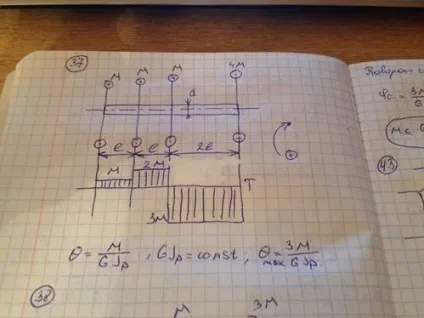 37
M M M 4M
d
e e 2e
M 2M T
3M
θ = M/GJp , GJp = const , θmax = 3M/GJp
38
M 3M
43